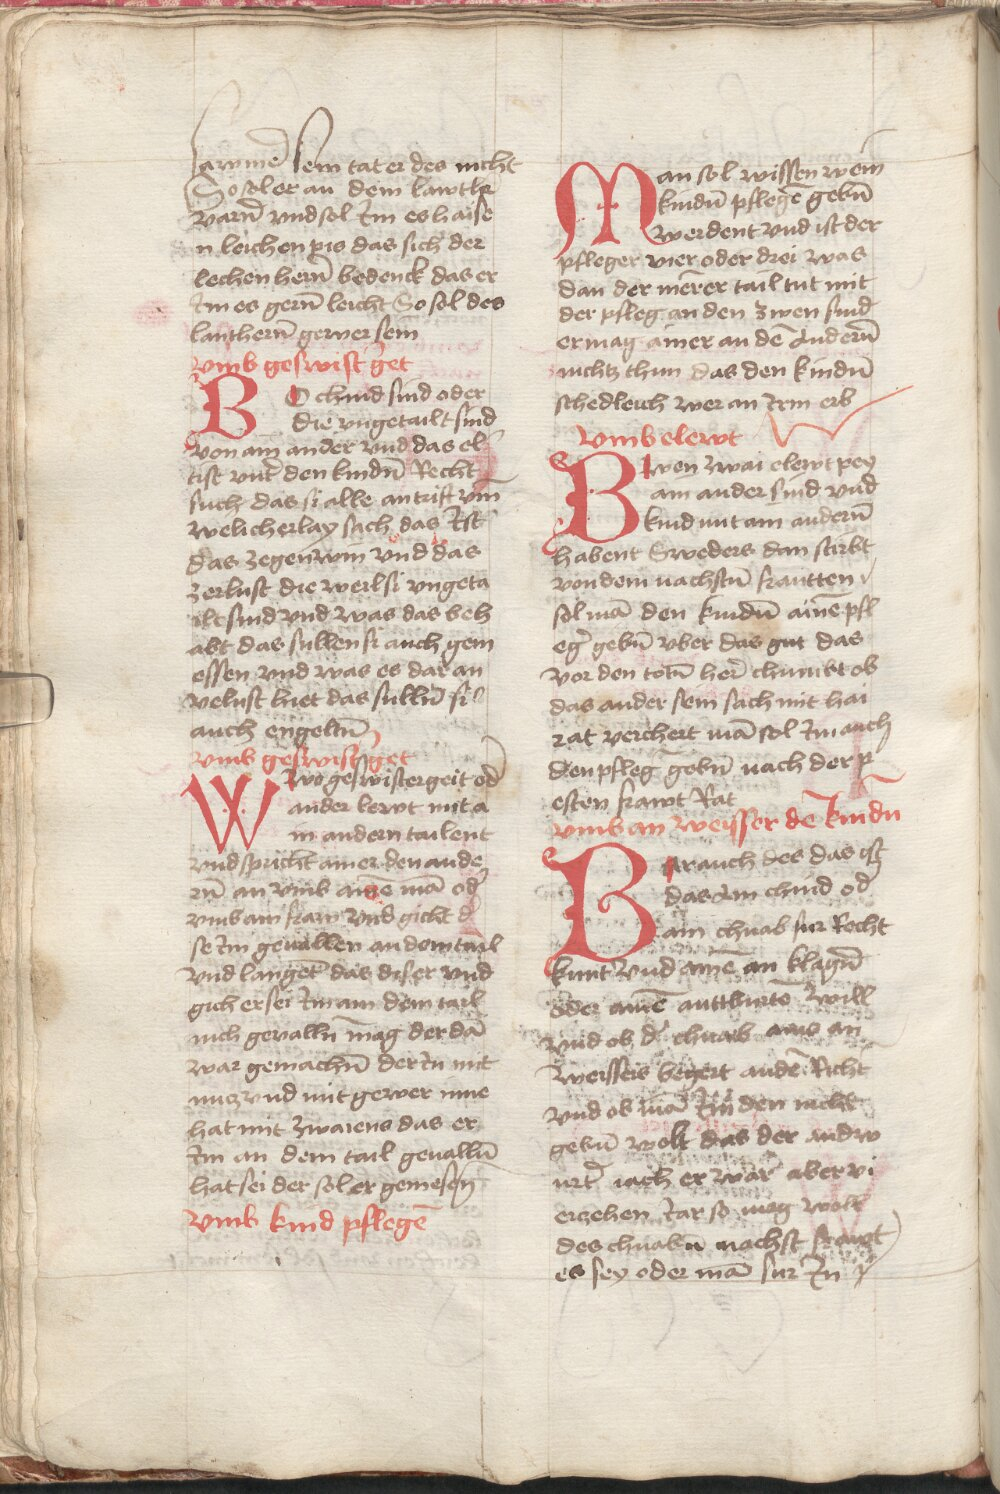 sawme sein tat er des nicht
So sol er an dem lawthr
varn̄ vnd sol Im es haise
n leichen pis das sich der
lechen hern̄ bedenck das er
Im es gern̄ leicht So sol des
lanthern̄ gewer sein
vmb geswistget
B O chind sind oder
die vngetailt sind
von am ander vnd das el
tist vnt̄ den kindn̄ Recht
such das si alle antrift vm̄
welicherlay sach das Ist
das zegenwin̄ vnd das
zerlust die weil si vngeta
ilt sind vnd was das beh
abt das sullen si auch gem
essen vnd was es dar an
velust hiet das sulln̄ si
auch engeltn̄
vmb geswistget
W Wo geswistergeit od
ander lewt mit a
in andern tailent
vnd spricht ainer den ande
rn̄ an vmb aine mā od
vmb ain fraw vnd gicht d
se Im geuallen an dem tail
vnd langet das diser vnd
gich er sei Im am dem tail
nich gevalln̄ mag der dā
war gemachn̄ der In mit
nucz vnd mit gewer inne
hat mit zwaiens das er
Im an dem tail geualln̄
hat sei der sol er geniesen
vmb kind pflegē
Man sol wissen wem
kindn̄ pflegē gebn̄
werdent vnd ist der
pfleger vier oder drei was
dan der merer tail tut mit
der pfleg an den zwen sind
er mag ainer an dē andern̄
nichtz thun das den kindn̄
schedleich wer an Irm erb
vmb elewt
B wen zwai elewt pey
am ander sind vnd
kind mit am andern̄
habent Sweders dan stirbt
von dem nachstn̄ frawtten
sol mā den kindn̄ ainē pfl
eg̅ gebn̄ vber das gut das
vor den totn̄ her chumbt ob
das ander sein sach mit hai
rat verchert mā sol Im auch
den pfleg̅ gebn̄ nach der p
esten frawt Rat
vmb an weysser dē kindn̄
B ar auch des das ist
das ain chind od
ain chnab fur Recht
kunt vnd ainē an klagn̄
oder ainē antthurtō will
vnd ob d̅ chnab ains an
weissers begert andē Richt
vnd ob mā Im den nicht
gebn̄ wolt das der andw
urt̄ iach er war aber vi
erzehen Iar so mag woll
des chnabn̄ nachst frawt
es sey oder mā fur In